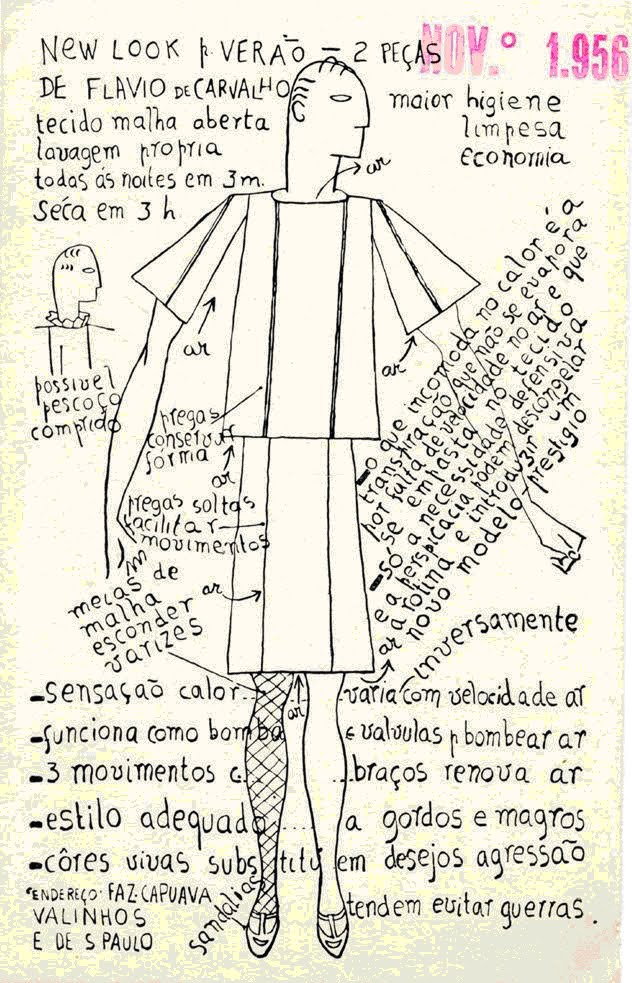 NEW LOOK p. VERÃO – 2 PEÇAS
NOV.º 1.956
DE FLAVIO DE CARVALHO
tecido malha aberta
lavagem propria
todas ás noites em 3 m.
Séca em 3 h
maior higiene
limpesa
economia
ar
possivel
pescoço
comprido
ar
ar
pregas
conservar
fórma
ar
pregas soltas
facilitar
movimentos
ar
meias de
malha
esconder
varizes
-o que incomoda no calor é a
transpiração que não se evapora
por falta de velocidade no ar e que
se empasta no tecido
-só a necessidade defensiva
e a perspicacia podem descongelar
a rotina e introduzir um
novo modelo prestigio
ar
ar
inversamente
-sensação calor... varia com velocidade ar
-funciona como bomba e valvulas p bombear ar
-3 movimentos c... ...braços renova ar
-estilo adequado .... a gordos e magros
-côres vivas substituem desejos agressão
tendem evitar guerras.
ENDEREÇO: FAZ. CAPUAVA
VALINHOS
E DE S PAULO
sandalias